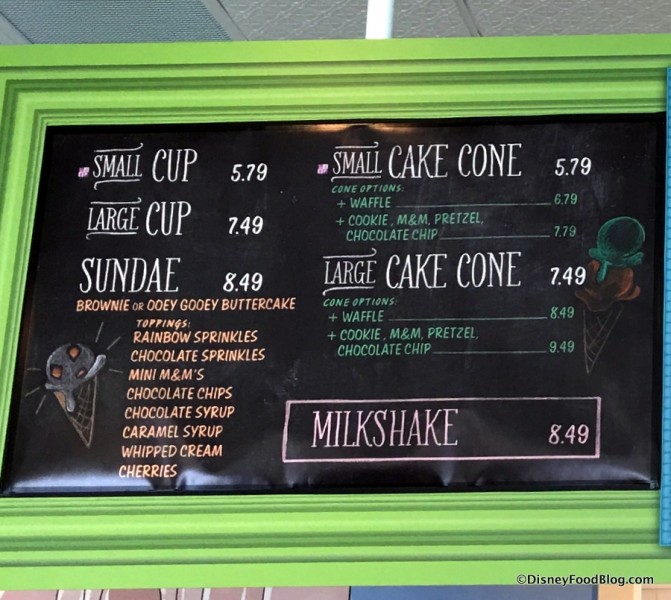 SMALL CUP 5.79
LARGE CUP 7.49
SUNDAE 8.49
BROWNIE OR OOEY GOOEY BUTTERCAKE
TOPPINGS:
RAINBOW SPRINKLES
CHOCOLATE SPRINKLES
MINI M&M'S
CHOCOLATE CHIPS
CHOCOLATE SYRUP
CARAMEL SYRUP
WHIPPED CREAM
CHERRIES
SMALL CAKE CONE 5.79
CONE OPTIONS:
+ WAFFLE 6.79
+ COOKIE, M&M, PRETZEL,
CHOCOLATE CHIP 7.79
LARGE CAKE CONE 7.49
CONE OPTIONS:
+ WAFFLE 8.49
+ COOKIE, M&M, PRETZEL,
CHOCOLATE CHIP 9.49
MILKSHAKE 8.49
©DisneyFoodBlog.com